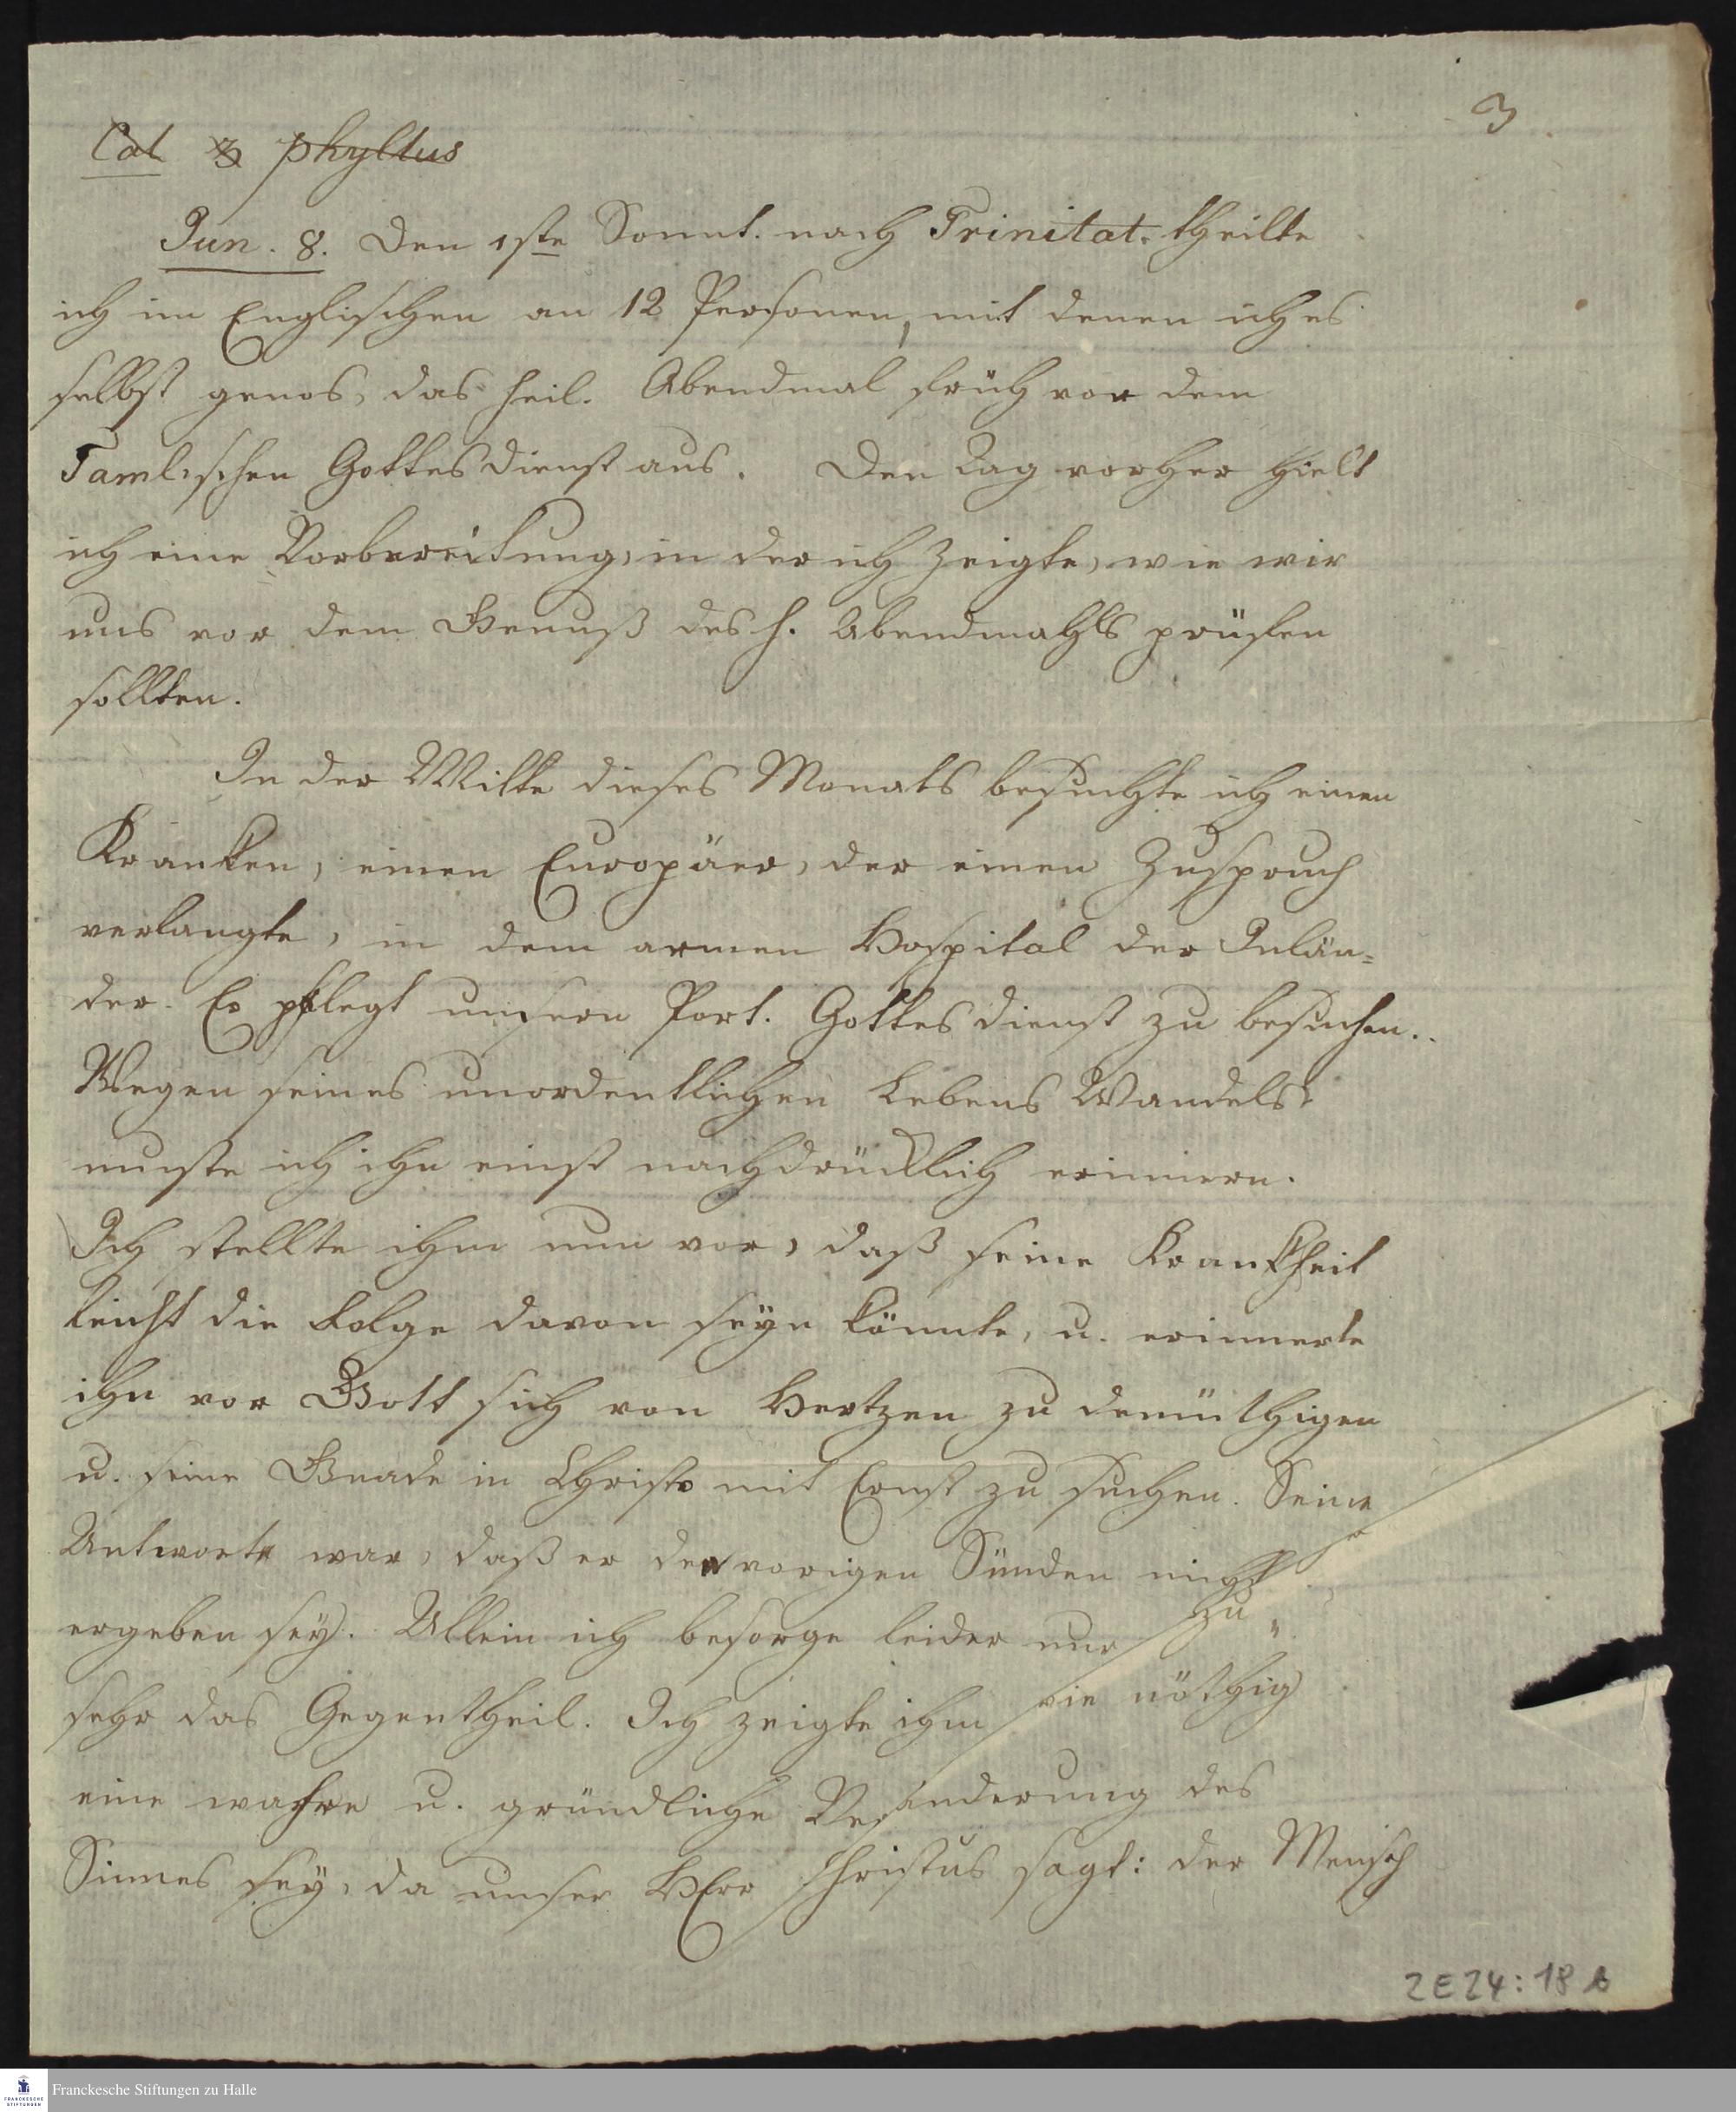 3
Cat 3 phyllus
Jun. 8. Den 1ste Sonnt. nach Trinitat. theilte
ich im Englischen an 12 Personen, mit denen ich es
selbst genos, das heil. Abendmal früh vor dem
Tamlischen Gottesdienst aus. Den Tag vorher hielt
ich eine Vorbereitung, in der ich zeigte, wie wir
uns vor dem Genuß des h. Abendmahls prüfen
sollten.
In der Mitte dieses Monats besuchte ich einen
Kranken, einen Europäer, der einen Zuspruch
verlangte, in dem armen Hospital der Inlän=
der. Er pflegt unsern Port. Gottesdienst zu besuchen.
Wegen seines unordentlichen Lebens Wandels
muste ich ihn einst nachdrücklich erinnern.
Ich stellte ihm nun vor, daß seine Krankheit
leicht die Folge davon seyn könnte, u. erinnerte
ihn vor Gott sich von Hertzen zu demüthigen
u. seine Gnade in Christo mit Ernst zu suchen. Seine
Antwort war, daß er den vorigen Sünden nicht so
ergeben sey. Allein ich besorge leider nur zu
sehr das Gegentheil. Ich zeigte ihm wie nöthig
eine wahre u. gründliche Veränderung des
Sinnes sey, da unser HErr Christus sagt: der Mensch
2E24:18 b
FRANCKESCHE STIFTUNGEN
Franckesche Stiftungen zu Halle